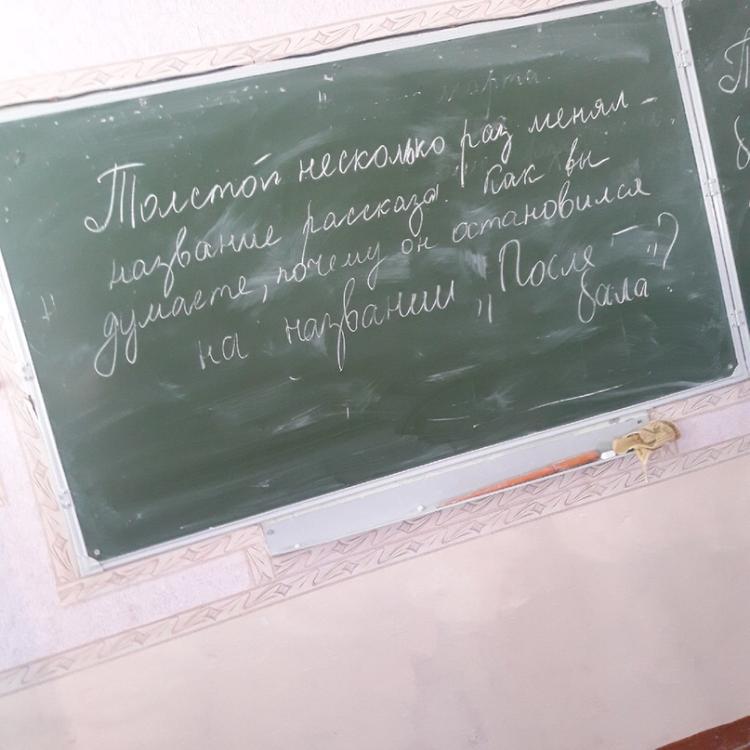 марта.
Толстой несколько раз менял
название рассказа. Как вы
думаете, почему он остановился
на названии „После
бала"?